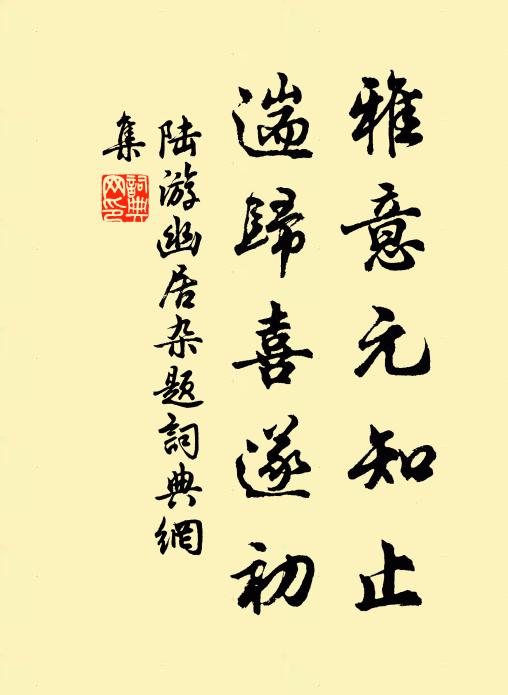 雅意元知止
遄歸喜遂初
陸游幽居杂題詞典網
集
詞典
网印